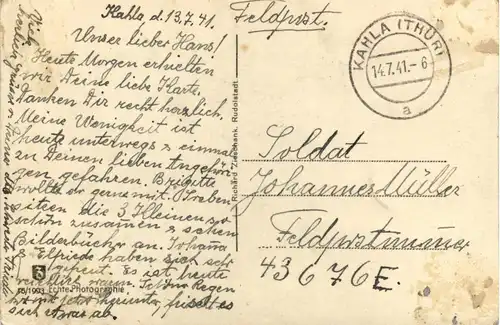 Kahla, d. 13.7.41.
Unser lieber Hans!
Heute Morgen erhielten
wir Deine liebe Karte.
Danken Dir recht herzlich.
Meine Wenigkeit ist
heute unterwegs u. einmal
zu Deinen lieben Angehö-
rigen gefahren. Brigitte
wollte gerne mit. Oben
sitzen die 3 Kleinen so
schön zusammen u. sehen
Bilderbücher an. Johanna
u. Elfriede haben sich sehr
gefreut. Es ist heute
reichlich warm. Regen
jetzt herunter, frischt es
sich etwas ab.
Viele
herzliche Grüße
Feldpost.
KAHLA (THÜR)
14.7.41.-6
a
Soldat
Johannes Müller
Feldpostnummer
43676E.
Richard Zieschank, Rudolstadt
18/1003 Echte Photographie